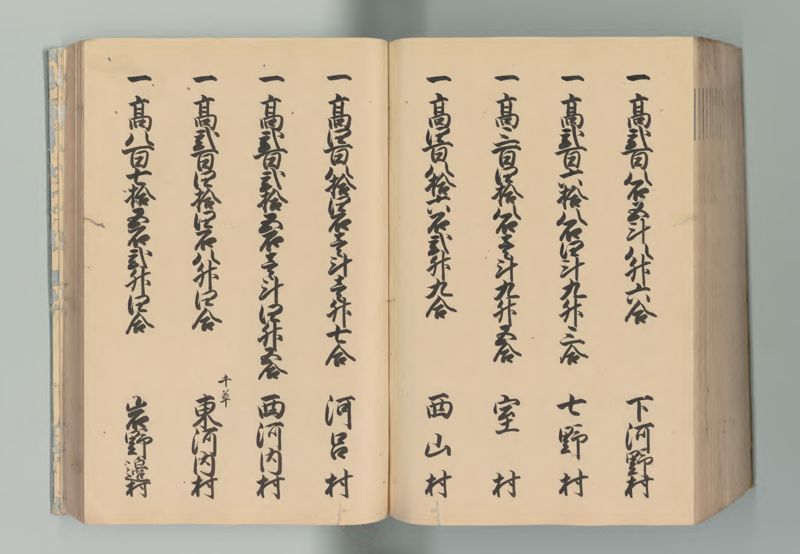 一 高弐百八石五斗八升六合 下河野村
一 高弐百六拾八石四斗九升三合 七野村
一 高三百四拾八石壱斗九升五合 室村
一 高四百八拾六石弐升九合 西山村
一 高四百八拾四石壱斗壱升七合 河呂村
一 高弐百弐拾五石壱斗四升五合 西河内村
一 高弐百四拾四石八升四合 千草 東河内村
一 高八百七拾五石弐升四合 岩野邊村